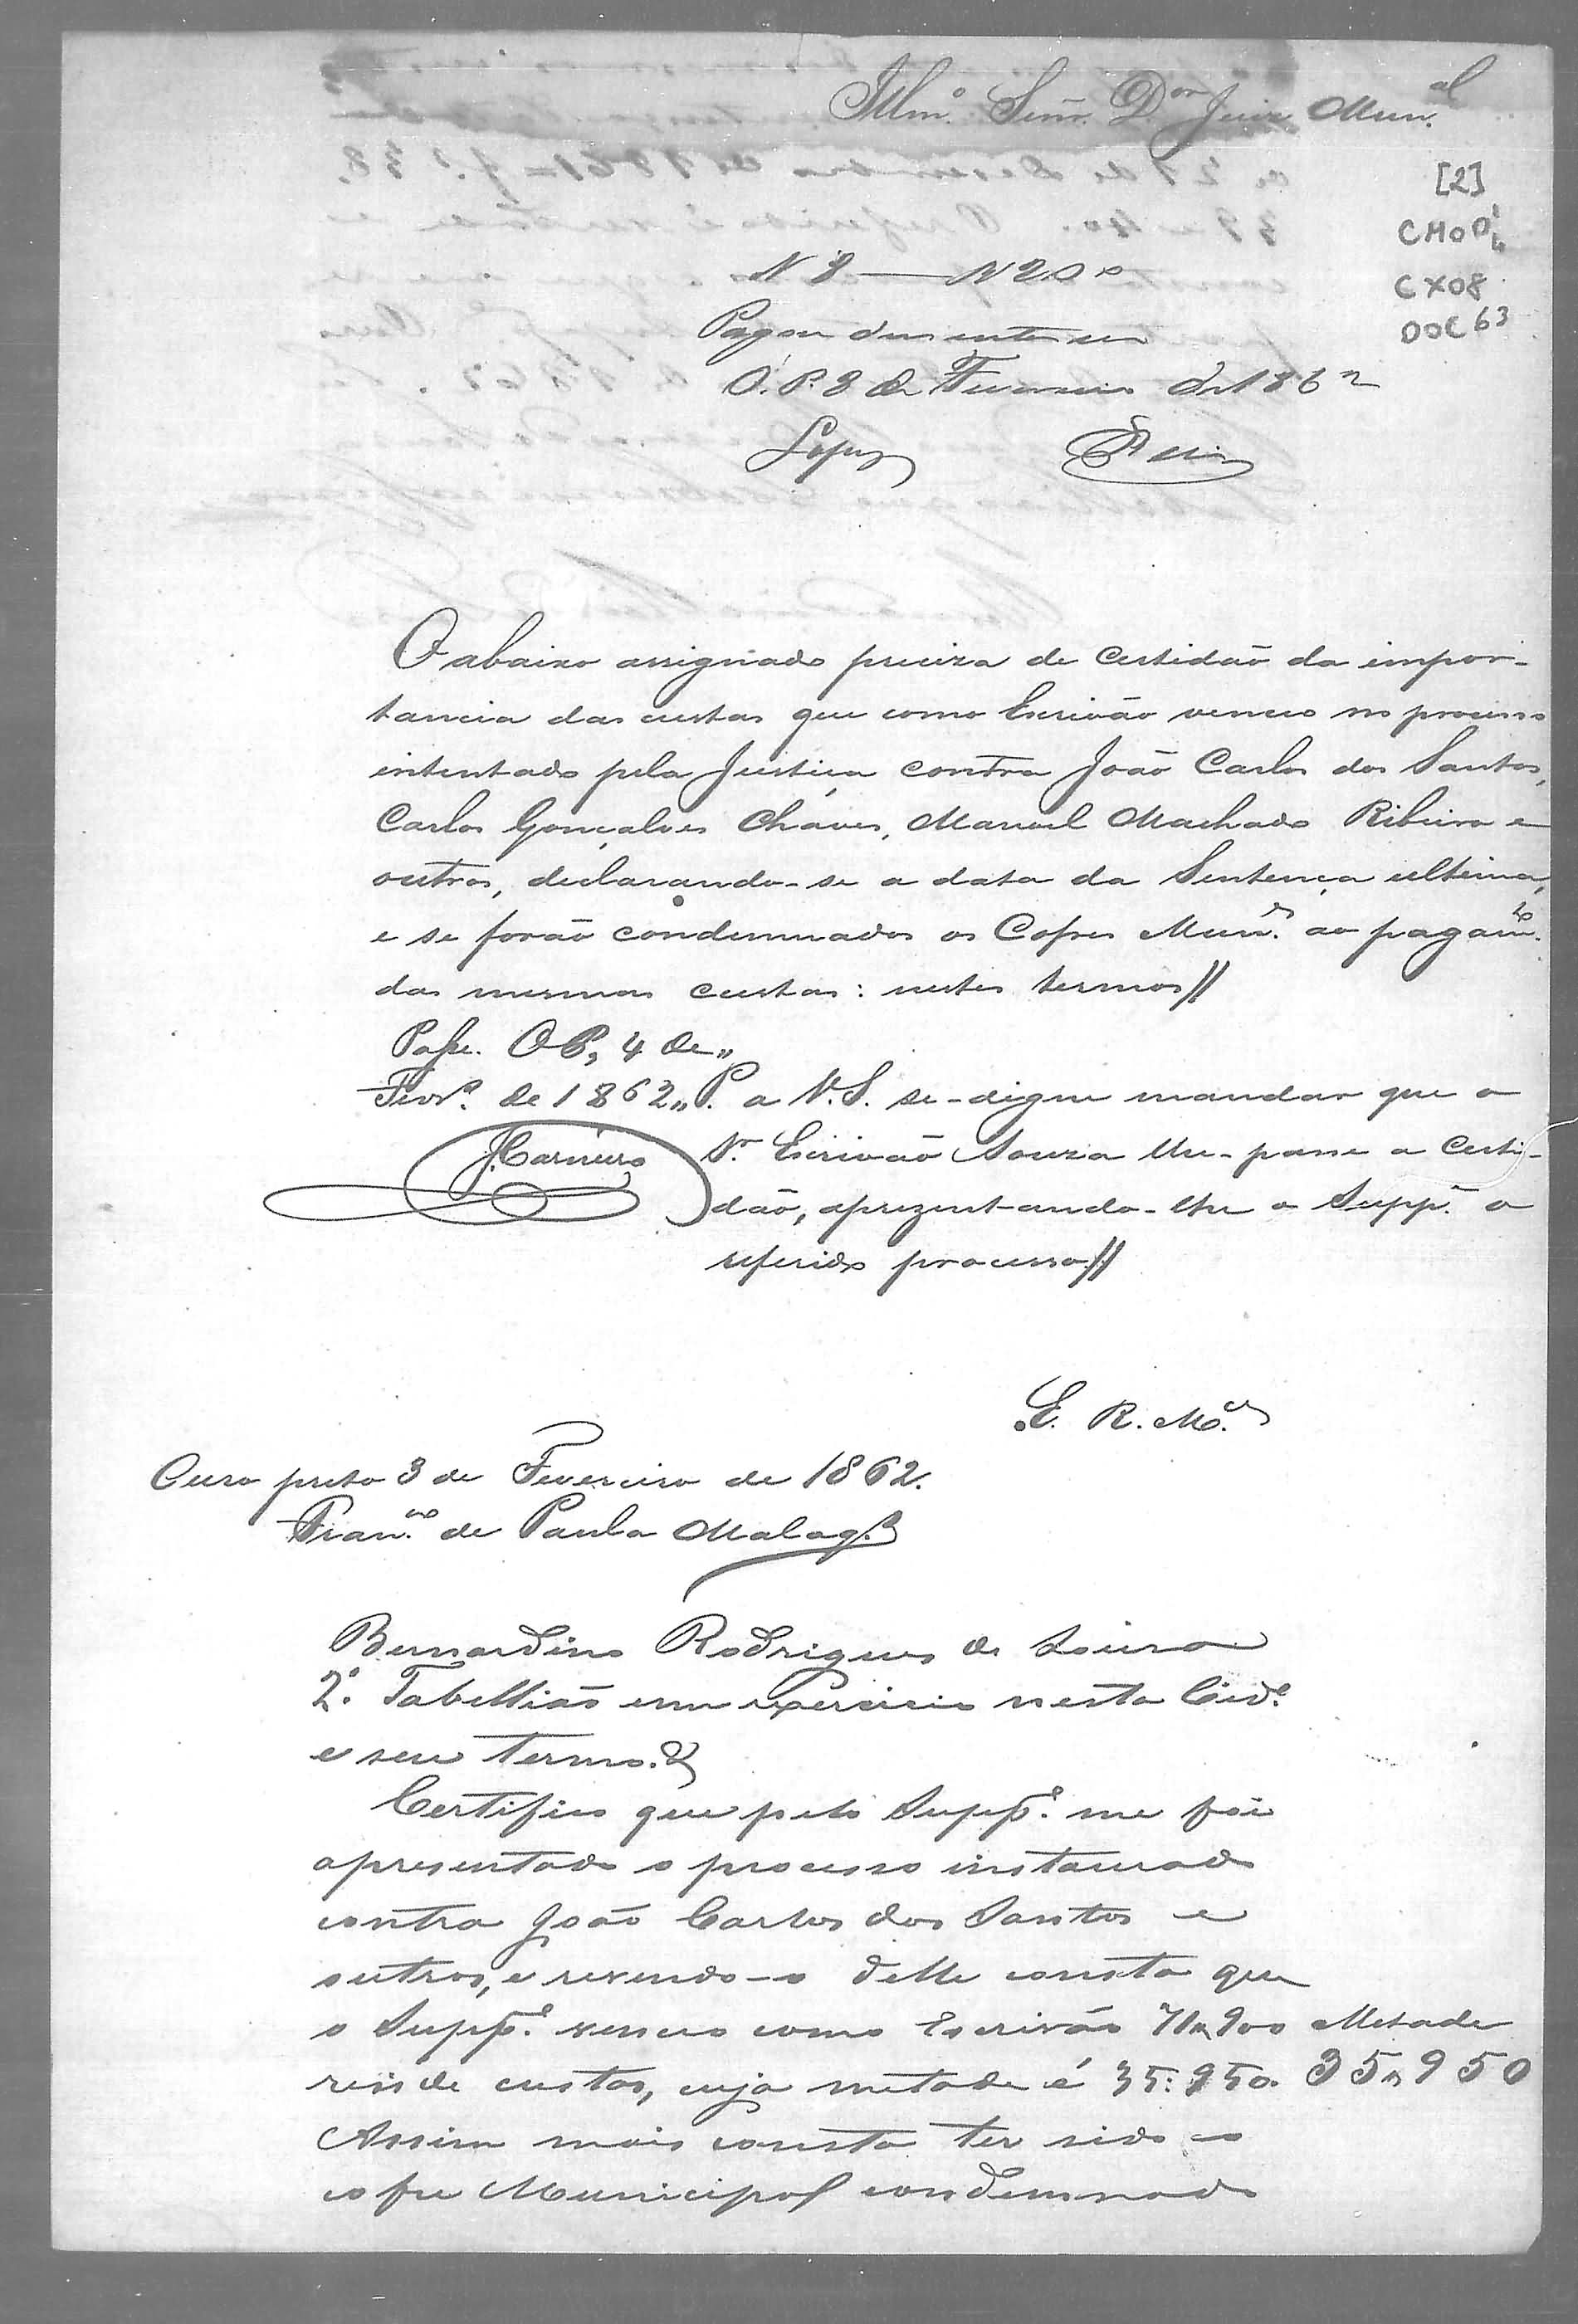 Illm.º Senr. D.or Juiz Mun.al
[2]
CMOP
CX08
DOC 63
N 8 — N 200
Pagou duzentos reis
O. P. 8 de Fevereiro de 1862
Lopes
O abaixo assignado preciza de Certidão da impor-
tancia das custas que como Escrivão venceo no processo
intentado pela Justiça contra João Carlos dos Santos,
Carlos Gonçalves Chaves, Manoel Machado Ribeiro e
outros, declarando-se a data da Sentença ultima,
e se forão condemnados os Cofres Mun.es ao pagam.to
das mesmas custas: nestes termos//
Passe. O P, 4 de,,
Fevr.º de 1862,, P. a V. S. se-digne mandar que o
J Carneiro
Sr. Escrivão Souza lhe-passe a Certi-
dão, aprezentando-lhe o Supp.e o
referido processo//
E. R. M.ce
Ouro preto 3 de Fevereiro de 1862.
Fran.co de Paula Malag.s
Bernardino Rodrigues de Souza
2.º Tabellião em exercicio nesta Cid.e
e seu termo. &
Certifico que pelo Supp.e me foi
apresentado o processo instaurado
contra João Carlos dos Santos e
outros, e revendo-o delle consta que
o Supp.e venceo como Escrivão 71,,900 Metade
reis de custas, cuja metade é 35:950. 35,,950
Assim mais consta ter sido o
cofre Municipal condemnado